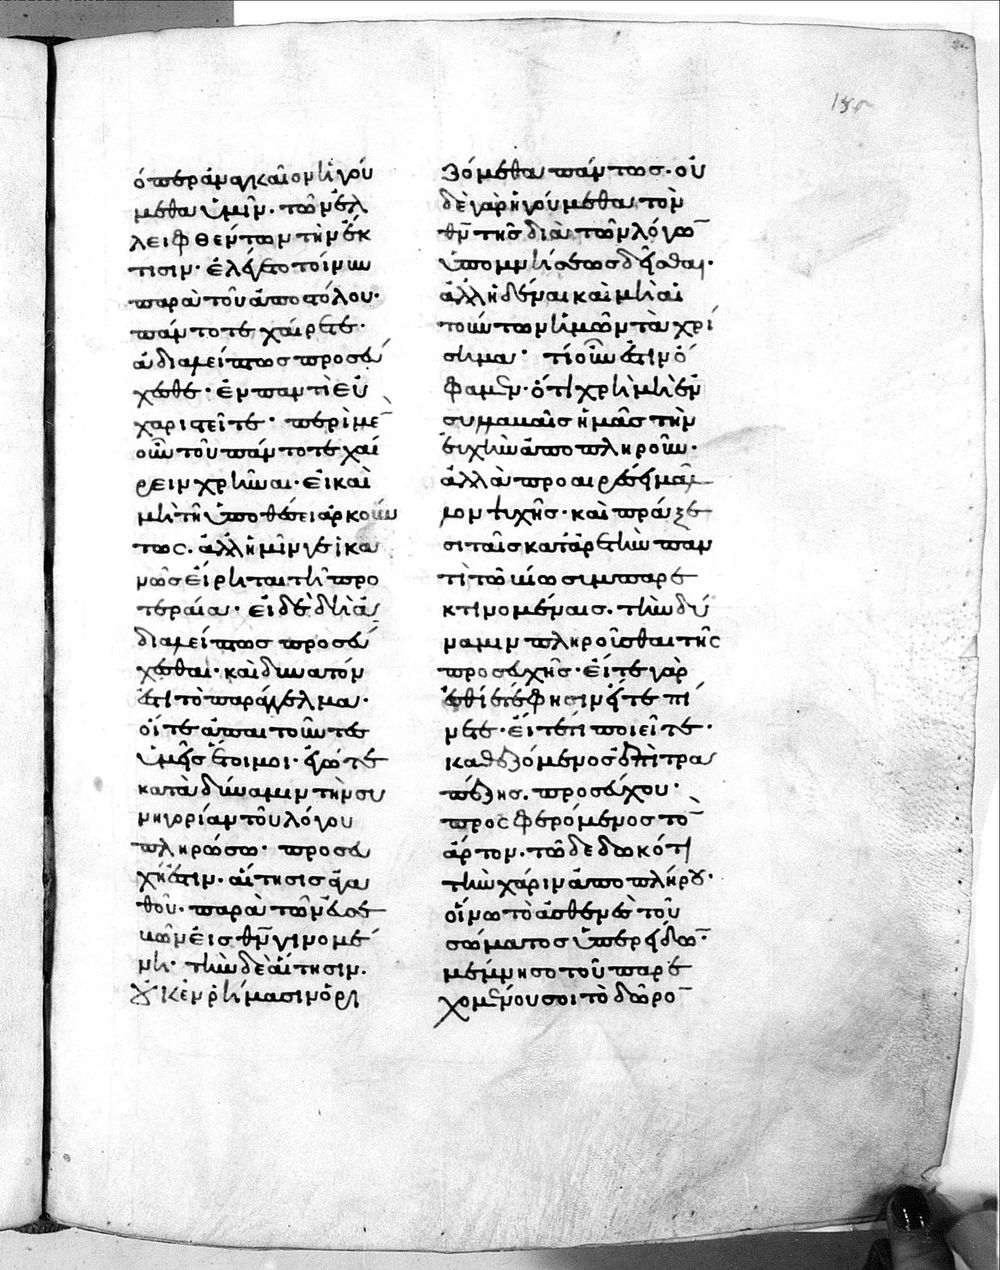 ὅπερ ἀναγκαῖον ἡγού
μεθα ὑμῖν. τῶν ἐλ
λειφθέντων τὴν ἔκ
τισιν. ἐλέγετο τοίνυν
παρὰ τοῦ ἀποστόλου.
πάντοτε χαίρετε.
ἀδιαλείπτως προσεύ
χεσθε. ἐν παντὶ εὐ
χαριστεῖτε. περὶ μὲ̅
οὖν τοῦ πάντοτε χαί
ρειν χρῆναι. εἰ καὶ
μὴ τῇ ὑποθέσει ἀρκούν
τως. ἀλλ' ἡμῖν γε ἱκα
νῶς εἴρηται τῇ προ
τεραία. εἰ δὲ δεῖ ἀ
διαλείπτως προσεύ
χεσθαι. καὶ δυνατόν
ἐστι τὸ παράγγελμα.
οἵ τε ἀπαιτοῦντες
ὑμεῖς ἕτοιμοι. ἐγώ τε
κατὰ δύναμιν τὴν συ
νηγορίαν τοῦ λόγου
πληρώσω. προσευ
χή ἐστιν. αἴτησις ἀγα
θοῦ. παρὰ τῶν εὐσε
βῶν εἰς θν̅ γινομέ
νη. τὴν δὲ αἴτησιν.
οὐκ ἐν ῥήμασιν ὁρι
ζόμεθα πάντως. οὐ
δὲ γὰρ ἡγούμεθα τὸν
θν̅ τῆς διὰ τῶν λόγω̅
ὑπομνήσεως δεῖσθαι.
ἀλλ' εἰδέναι καὶ μὴ αἰ
τούντων ἡμῶν τὰ χρή
σιμα. τί οὖν ἐστιν ὅ
φαμεν. ὅτι χρὴ μὴ ἐν
συλλαβαῖς ἡμᾶς τὴν
εὐχὴν ἀποπληροῦν.
ἀλλὰ προαιρέσει μᾶλ
λον ψυχῆς. καὶ πράξε
σι ταῖς κατ' ἀρετὴν παν
τὶ τῷ βίῳ συμπαρε
κτινομέναις. τὴν δύ
ναμιν πληροῦσθαι τῆς
προσευχῆς. εἴτε γὰρ
ἐσθίετέ φησιν εἴτε πί
νετε. εἴτέ τι ποιεῖτε.
καθεζόμενος ἐπὶ τρα
πέζης. προσεύχου.
προσφερόμενος τὸ̅
ἄρτον. τῷ δεδωκότι
τὴν χάριν ἀποπλήρου.
οἴνω τὸ ἀσθενὲς τοῦ
σώματος ὑπερείδω̅.
μέμνησο τοῦ παρε
χομένου σοι τὸ δῶρο̅